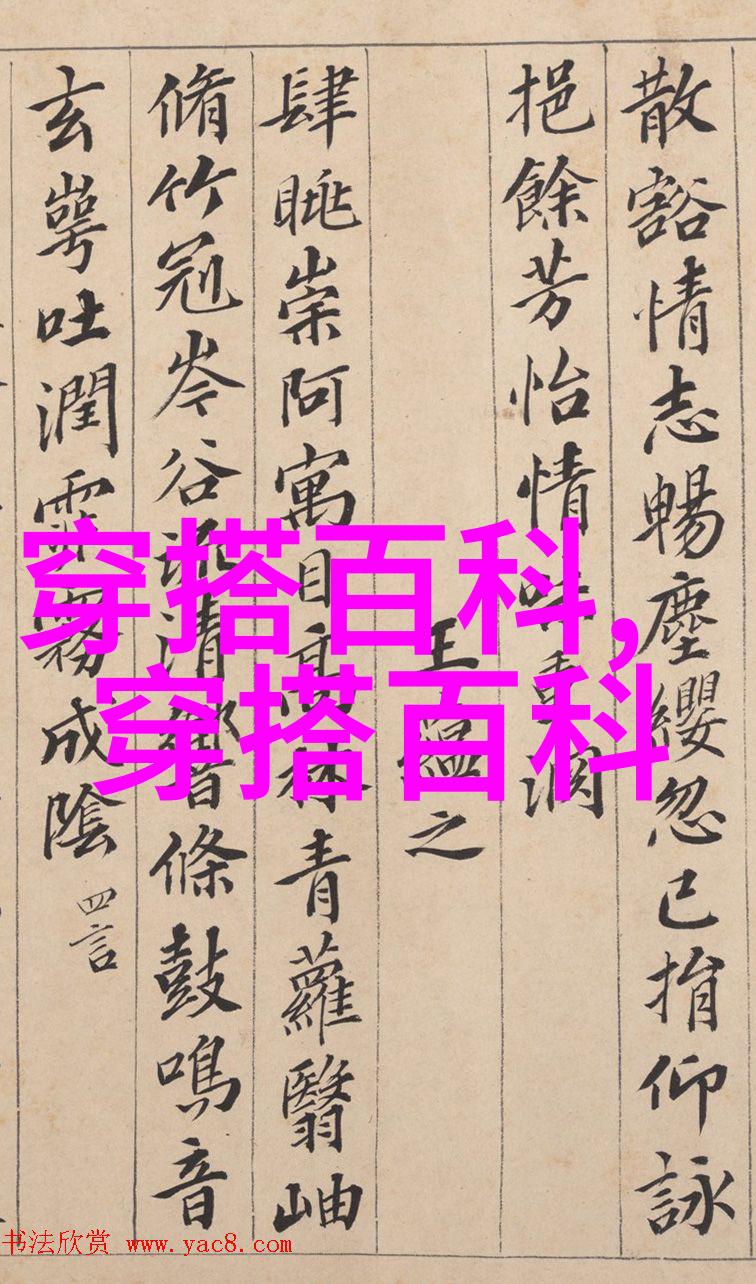 散豁情志暢塵纓忽已捐仰詠
挹餘芳怡情味重淵
王緼之
肆眺崇阿寓目高林青蘿翳岫
脩竹冠岑谷流清響條鼓鳴音
玄崿吐潤霏霧成陰 四言
穿搭百科,
穿搭百科
书法欣赏 www.yac8.com